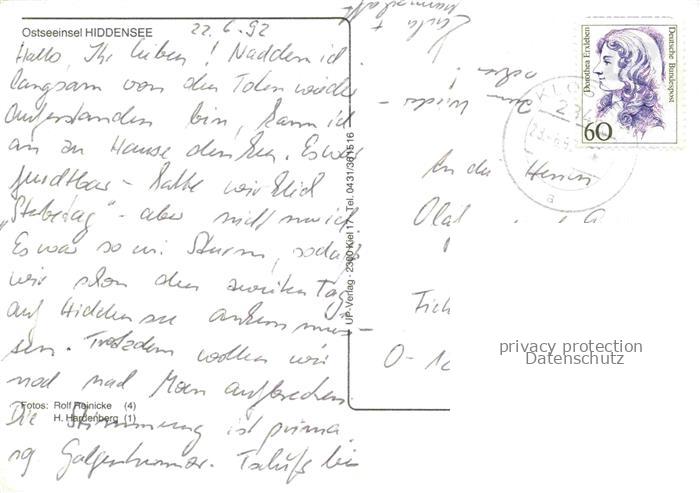 Ostseeinsel HIDDENSEE
22.6.92
Hallo, Ihr lieben! Nachdem ich
langsam von den Toten wieder
auferstanden bin, kann ich
an zu Hause denken. Es war
furchtbar - hatte wirklich
"Sterbetag" - aber nicht nur ich.
Es war so ein Sturm, sodaß
wir schon den zweiten Tag
auf Hiddensee ankern müs-
sen. Trotzdem wollen wir
noch nach Moen aufbrechen.
Die Stimmung ist prima
Galgenhumor. Tschüß bis
Fotos: Rolf Reinicke (4)
H. Hardenberg (1)
UP-Verlag · 2300 Kiel 17 · Tel. 0431/361516
zum Wieder-
sehn!
Dorothea Erxleben
Deutsche Bundespost
60
KLOS
a
An die Herren
O-1
privacy protection
Datenschutz